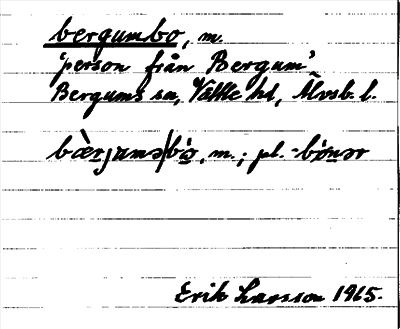 bergumbo, m.
'person från Bergum'
Bergums sn, Vättle hd, Älvsb. l.
bæ̀rjamə|bò̱, m.; pl. -bònər
Erik Larsson 1965.